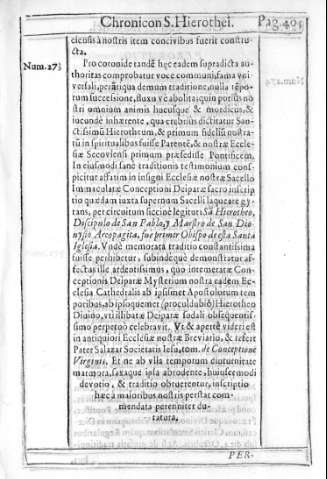 Chronicon S. Hierothei. Pag. 495
clensis à nostris item concivibus fuerit constru-
cta.
Num. 273 Pro coronide tandẽ hęc eadem supradicta au-
thoritas comprobatur voce communi, fama vni
versali, perãtiqua demum traditione, nulla tẽpo-
rum successione, fluxu vè abolita; quin potiùs no
stri omnium animis hucusque & mordicus, &
iucundè inhærente, qua crebriùs dictitatur San-
ctissimũ Hierotheum, & primum fideliũ nostra-
rũ in spiritualibus fuisse Parentẽ, & nostræ Eccle-
siæ Secoviensi primum præsedisse Pontificem.
In eiusmodi sanè traditionis testimonium con-
spicitur affatim in insigni Ecclesiæ nostræ Sacello
Immaculatæ Conceptioni Deiparæ sacro inscrip
tio quædam iuxta supernum Sacelli laqueare gy-
rans, per circuitum siccinè legitur: Sã Hierotheo,
Discipulo de San Pablo, y Maestro de San Dio-
nysio Areopagita, fue primer Obispo de esta Santa
Iglesia. Vndè memorata traditio constantissima
fuisse perhibetur, subindèque demonstratur af-
fectus ille ardentissimus, quo intemeratæ Con-
ceptionis Deiparæ Mysterium nostra eadem Ec-
clesia Cathedralis ab ipsimet Apostolorum tem
poribus, ab ipsoquemet (proculdubiò) Hierotheo
Diuino, vti illibatæ Deiparæ sodali obsequentis-
simo perpetuò celebravit. Vt & apertè videri est
in antiquiori Ecclesiæ nostræ Breviario, & refert
Pater Salazar Societatis Iesu, tom. de Conceptione
Virginis. Et ne ab vlla temporum diuturnitate
marmora, saxaque ipsa abrodente, huiuscemodi
devotio, & traditio obtueretur, inscriptio
hæc à maioribus nostris perstat com-
mendata perenniter du-
ratura.
PER-